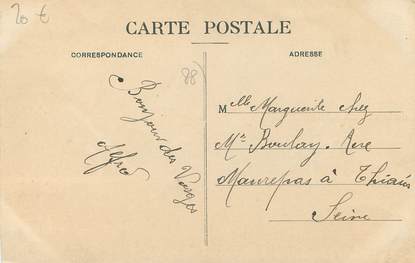 20 €
CARTE POSTALE
CORRESPONDANCE
ADRESSE
88)
Bonjour des Vosges
Alfred
Mlle Marguerite chez
Mr Boulay. Rue
Maurepas à Thiais
Seine